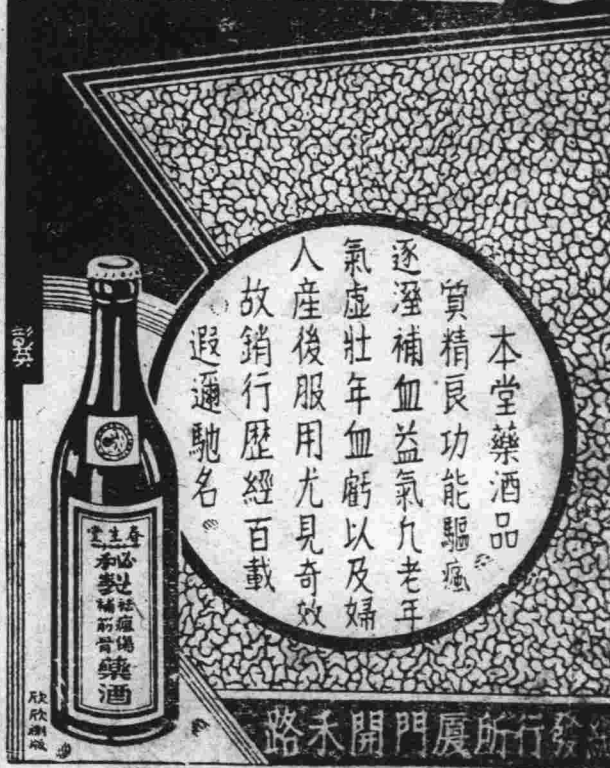 本堂藥酒品
質精良功能驅瘋
逐溼補血益氣凢老年
氣虛壯年血虧以及婦
人產後服用尤見奇效
故銷行歷經百載
遐邇馳名
春生堂
秘製
祛瘋傷
補筋骨
藥酒
總發行所厦門開禾路
欣欣製版